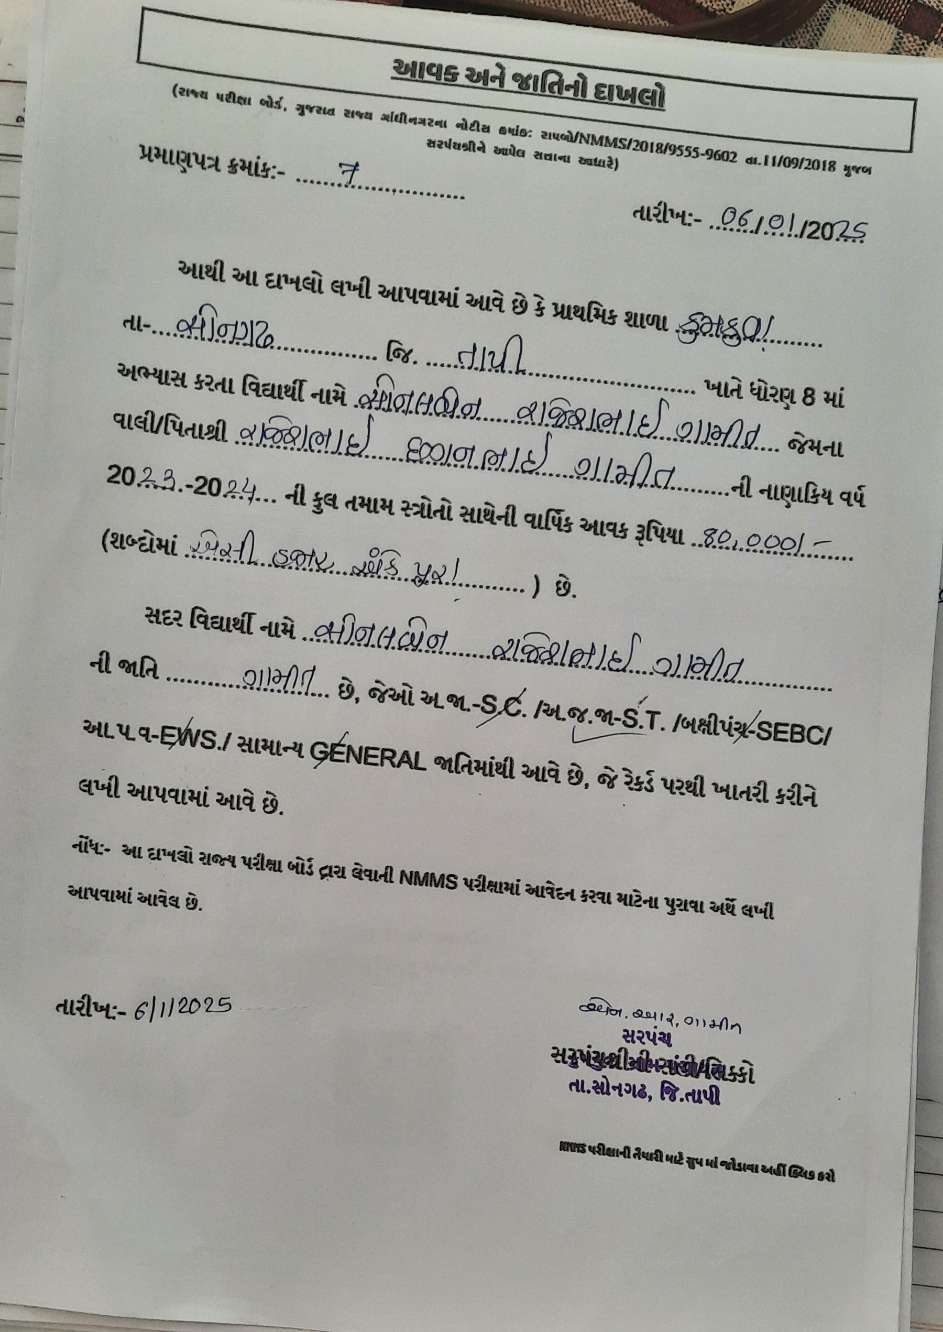 આવક અને જાતિનો દાખલો
(રાજ્ય પરીક્ષા બોર્ડ, ગુજરાત રાજ્ય ગાંધીનગરના નોટીસ ક્રમાંક: રાપબો/NMMS/2018/9555-9602 તા.11/09/2018 મુજબ
સરપંચશ્રીને આપેલ સત્તાના આધારે)
પ્રમાણપત્ર ક્રમાંક:- ....7....
તારીખ:- 06/01/2025
આથી આ દાખલો લખી આપવામાં આવે છે કે પ્રાથમિક શાળા કુમકુવા
તા-...સોનગઢ... જિ. ...તાપી... ખાતે ધોરણ 8 માં
અભ્યાસ કરતા વિદ્યાર્થી નામે સોનલબેન રાજેશભાઈ ગામીત જેમના
વાલી/પિતાશ્રી રાજેશભાઈ છગનભાઈ ગામીત ની નાણાકિય વર્ષ
2023-2024 ની કુલ તમામ સ્ત્રોતો સાથેની વાર્ષિક આવક રૂપિયા 80,000/-
(શબ્દોમાં એંસી હજાર અંકે પુરા ) છે.
સદર વિદ્યાર્થી નામે સોનલબેન રાજેશભાઈ ગામીત
ની જાતિ ગામીત છે, જેઓ અ.જા.-S.C. /અ.જ.જા-S.T. /બક્ષીપંચ-SEBC/
આ.પ.વ-EWS./ સામાન્ય GENERAL જાતિમાંથી આવે છે, જે રેકર્ડ પરથી ખાતરી કરીને
લખી આપવામાં આવે છે.
નોંધ:- આ દાખલો રાજ્ય પરીક્ષા બોર્ડ દ્વારા લેવાની NMMS પરીક્ષામાં આવેદન કરવા માટેના પુરાવા અર્થે લખી
આપવામાં આવેલ છે.
તારીખ:- 6/1/2025
એન. આર. ગામીત
સરપંચ
સરપંચશ્રીની સહી/સિક્કો
તા.સોનગઢ, જિ.તાપી
NMMS પરીક્ષાની તૈયારી માટે ગ્રુપ માં જોડાવા અહીં ક્લિક કરો